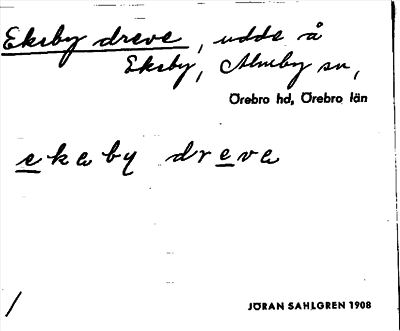 Ekeby dreve, udde å
Ekeby, Almby sn,
Örebro hd, Örebro län
ekaby dreva
JÖRAN SAHLGREN 1908
/